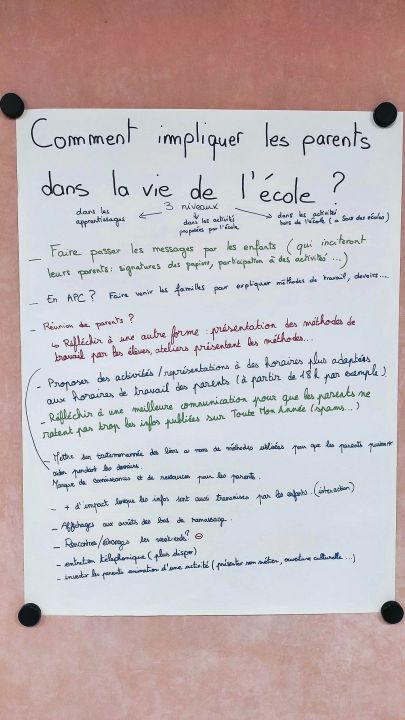 Comment impliquer les parents
dans la vie de l'école ?
3 niveaux
dans les
apprentissages
dans les activités
proposées par l'école
dans les activités
hors de l'école (sou des écoles)
— Faire passer les messages par les enfants (qui inciteront
leurs parents : signatures des papiers, participation à des activités ...)
— En APC ? Faire venir les familles pour expliquer méthodes de travail, devoirs...
- Réunion de parents ?
↳ Réfléchir à une autre forme : présentation des méthodes de
travail par les élèves, ateliers présentant les méthodes...
- Proposer des activités / représentations à des horaires plus adaptées
aux horaires de travail des parents (à partir de 18h par exemple)
- Réfléchir à une meilleure communication pour que les parents ne
ratent pas trop les infos publiées sur Toute Mon Année (spams...)
- Mettre sur toutemonannée des liens de méthodes utilisées pour que les parents puissent
aider pendant les devoirs.
Manque de connaissances et de ressources pour les parents.
- + d'impact lorsque les infos sont aussi transmises par les enfants. (interaction)
- Affichages aux arrêts des bus de ramassage.
- Rencontres/échanges les week-ends ? ☹
- entretien téléphonique (plus dispo)
- investir les parents animation d'une activité (présenter son métier, ouverture culturelle...)